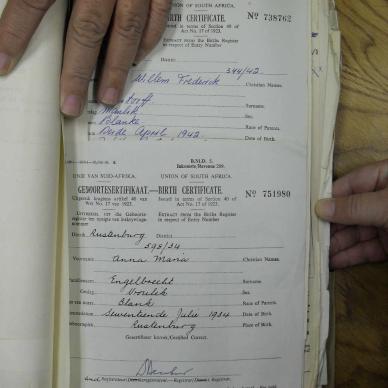 UNION OF SOUTH AFRICA.
BIRTH CERTIFICATE. Nº 738762
Issued in terms of Section 40 of
Act No. 17 of 1923.
Extract from the Births Register
in respect of Entry Number
District
344/42
Willem Frederick Christian Names.
Surname.
Manlik Sex.
Blanke Race of Parents.
Derde April 1942 Date of Birth.
B.M.D. 5.
UNIE VAN SUID-AFRIKA. UNION OF SOUTH AFRICA.
GEBOORTESERTIFIKAAT.—BIRTH CERTIFICATE. Nº 751980
Uitgereik kragtens artikel 40 van Issued in terms of Section 40 of
Wet No. 17 van 1923. Act No. 17 of 1923.
Uittreksel uit die Geboorteregister Extract from the Births Register
in respect of Entry Number
Distrik Rustenburg District
595/34
Anna Maria Christian Names.
Engelbrecht Surname.
Geslag Vroulik Sex.
Blank Race of Parents.
Sewentiende Julie 1934 Date of Birth.
Rustenburg Place of Birth.
Gesertifiseer korrek/Certified Correct.